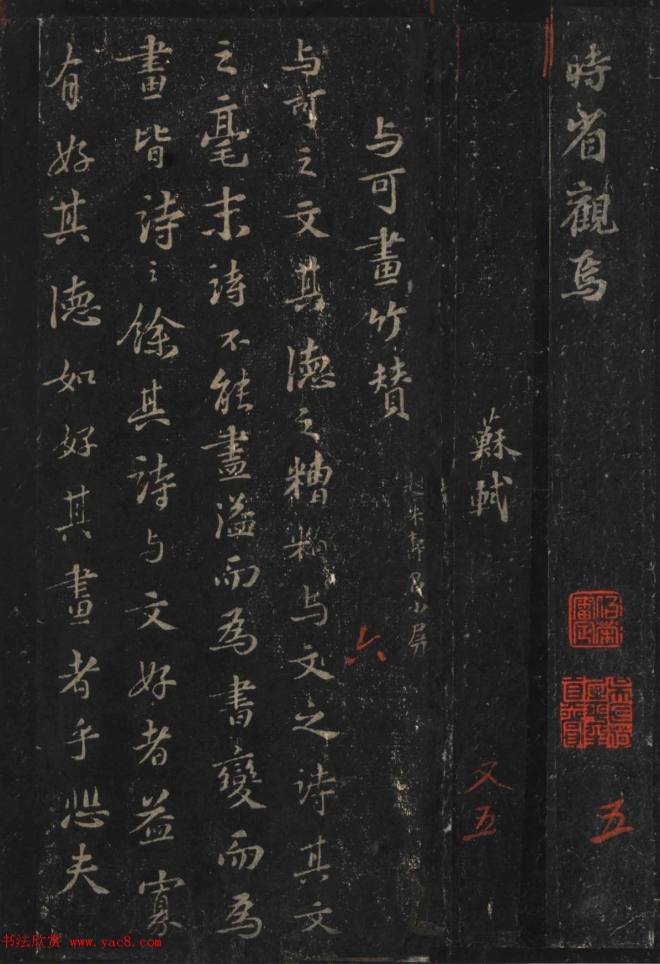 時省觀焉
五
蘇軾
又五
与可畫竹贊
六
与可之文其德之糟粕与文之詩其文
之毫末詩不能盡溢而為書變而為
畫皆詩之餘其詩与文好者益寡
有好其德如好其畫者乎悲夫
书法欣赏 www.yac8.com